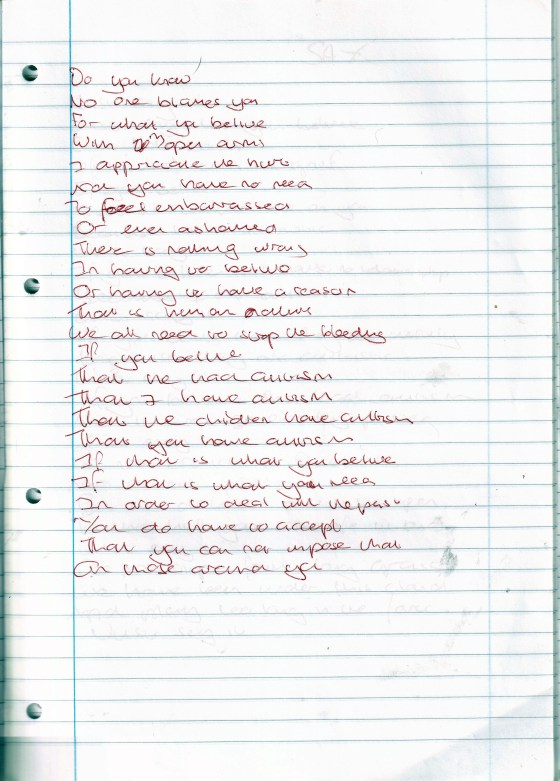 Do you know
No one blames you
For what you belive
With open arms
I appriciate the hurt
And you have no need
To feel embarrassed
Or even ashamed
There is nothing wrong
In having to belive
Or having to have a reason
That is human nature
We all need to stop the bleeding
If you belive
That he had autism
That I have autism
That the children have autism
That you have autism
If that is what you belive
If that is what you need
In order to deal with the past
You do have to accept
That you can not impose that
On those around you